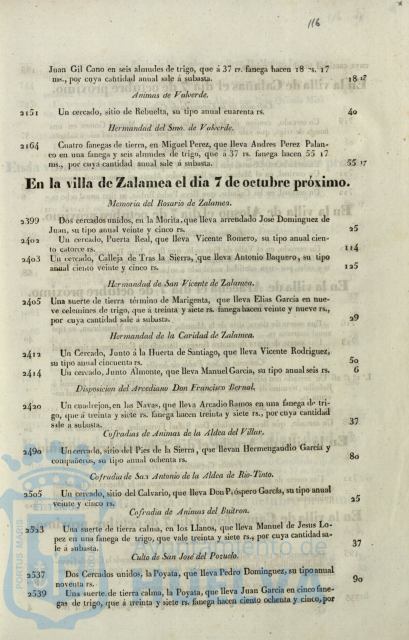 116
Juan Gil Cano en seis almudes de trigo, que á 37 rs. fanega hacen 18 rs. 17
ms., por cuya cantidad anual sale á subasta. 18 17
Animas de Valverde.
2151 Un cercado, sitio de Rebuelta, su tipo anual cuarenta rs. 40
Hermandad del Smo. de Valverde.
2164 Cuatro fanegas de tierra, en Miguel Perez, que lleva Andres Perez Palan-
co en una fanega y seis almudes de trigo, que á 37 rs. fanega hacen 55 17
ms., por cuya cantidad anual sale á subasta. 55 17
En la villa de Zalamea el dia 7 de octubre próximo.
Memoria del Rosario de Zalamea.
2399 Dos cercados unidos, en la Morita, que lleva arrendado José Dominguez de
Juan, su tipo anual veinte y cinco rs. 25
2402 Un cercado, Puerta Real, que lleva Vicente Romero, su tipo anual cien-
to catorce rs. 114
2403 Un cercado, Calleja de Tras la Sierra, que lleva Antonio Baquero, su tipo
anual ciento veinte y cinco rs. 125
Hermandad de San Vicente de Zalamea.
2405 Una suerte de tierra término de Marigenta, que lleva Elias García en nue-
ve celemines de trigo, que á treinta y siete rs. fanega hacen veinte y nueve rs.,
por cuya cantidad sale á subasta. 29
Hermandad de la Caridad de Zalamea.
2412 Un Cercado, Junto á la Huerta de Santiago, que lleva Vicente Rodriguez,
su tipo anual cincuenta rs. 50
2414 Un cercado, Junto Almonte, que lleva Manuel García, su tipo anual seis rs. 6
Disposicion del Arcediano Don Francisco Bernal.
2420 Un cuadrejon, en las Navas, que lleva Arcadio Ramos en una fanega de tri-
go, que á treinta y siete rs. fanega hacen treinta y siete rs., por cuya cantidad
sale a subasta. 37
Cofradias de Animas de la Aldea del Villar.
2490 Un cercado, sitio del Pies de la Sierra, que llevan Hermengaudio García y
compañeros, su tipo anual ochenta rs. 80
Cofradia de San Antonio de la Aldea de Rio-Tinto.
2505 Un cercado, sitio del Calvario, que lleva Don Próspero García, su tipo anual
veinte y cinco rs. 25
Cofradia de Animas del Buitron.
2523 Una suerte de tierra calma, en los Llanos, que lleva Manuel de Jesus Lo-
pez en una fanega de trigo, que vale treinta y siete rs., por cuya cantidad sa-
le á subasta. 37
Culto de San José del Pozuelo.
2537 Dos Cercados unidos, la Poyata, que lleva Pedro Dominguez, su tipo anual
noventa rs. 90
2539 Una suerte de tierra calma, la Poyata, que lleva Juan García en cinco fane-
gas de trigo, que á treinta y siete rs. fanega hacen ciento ochenta y cinco, por